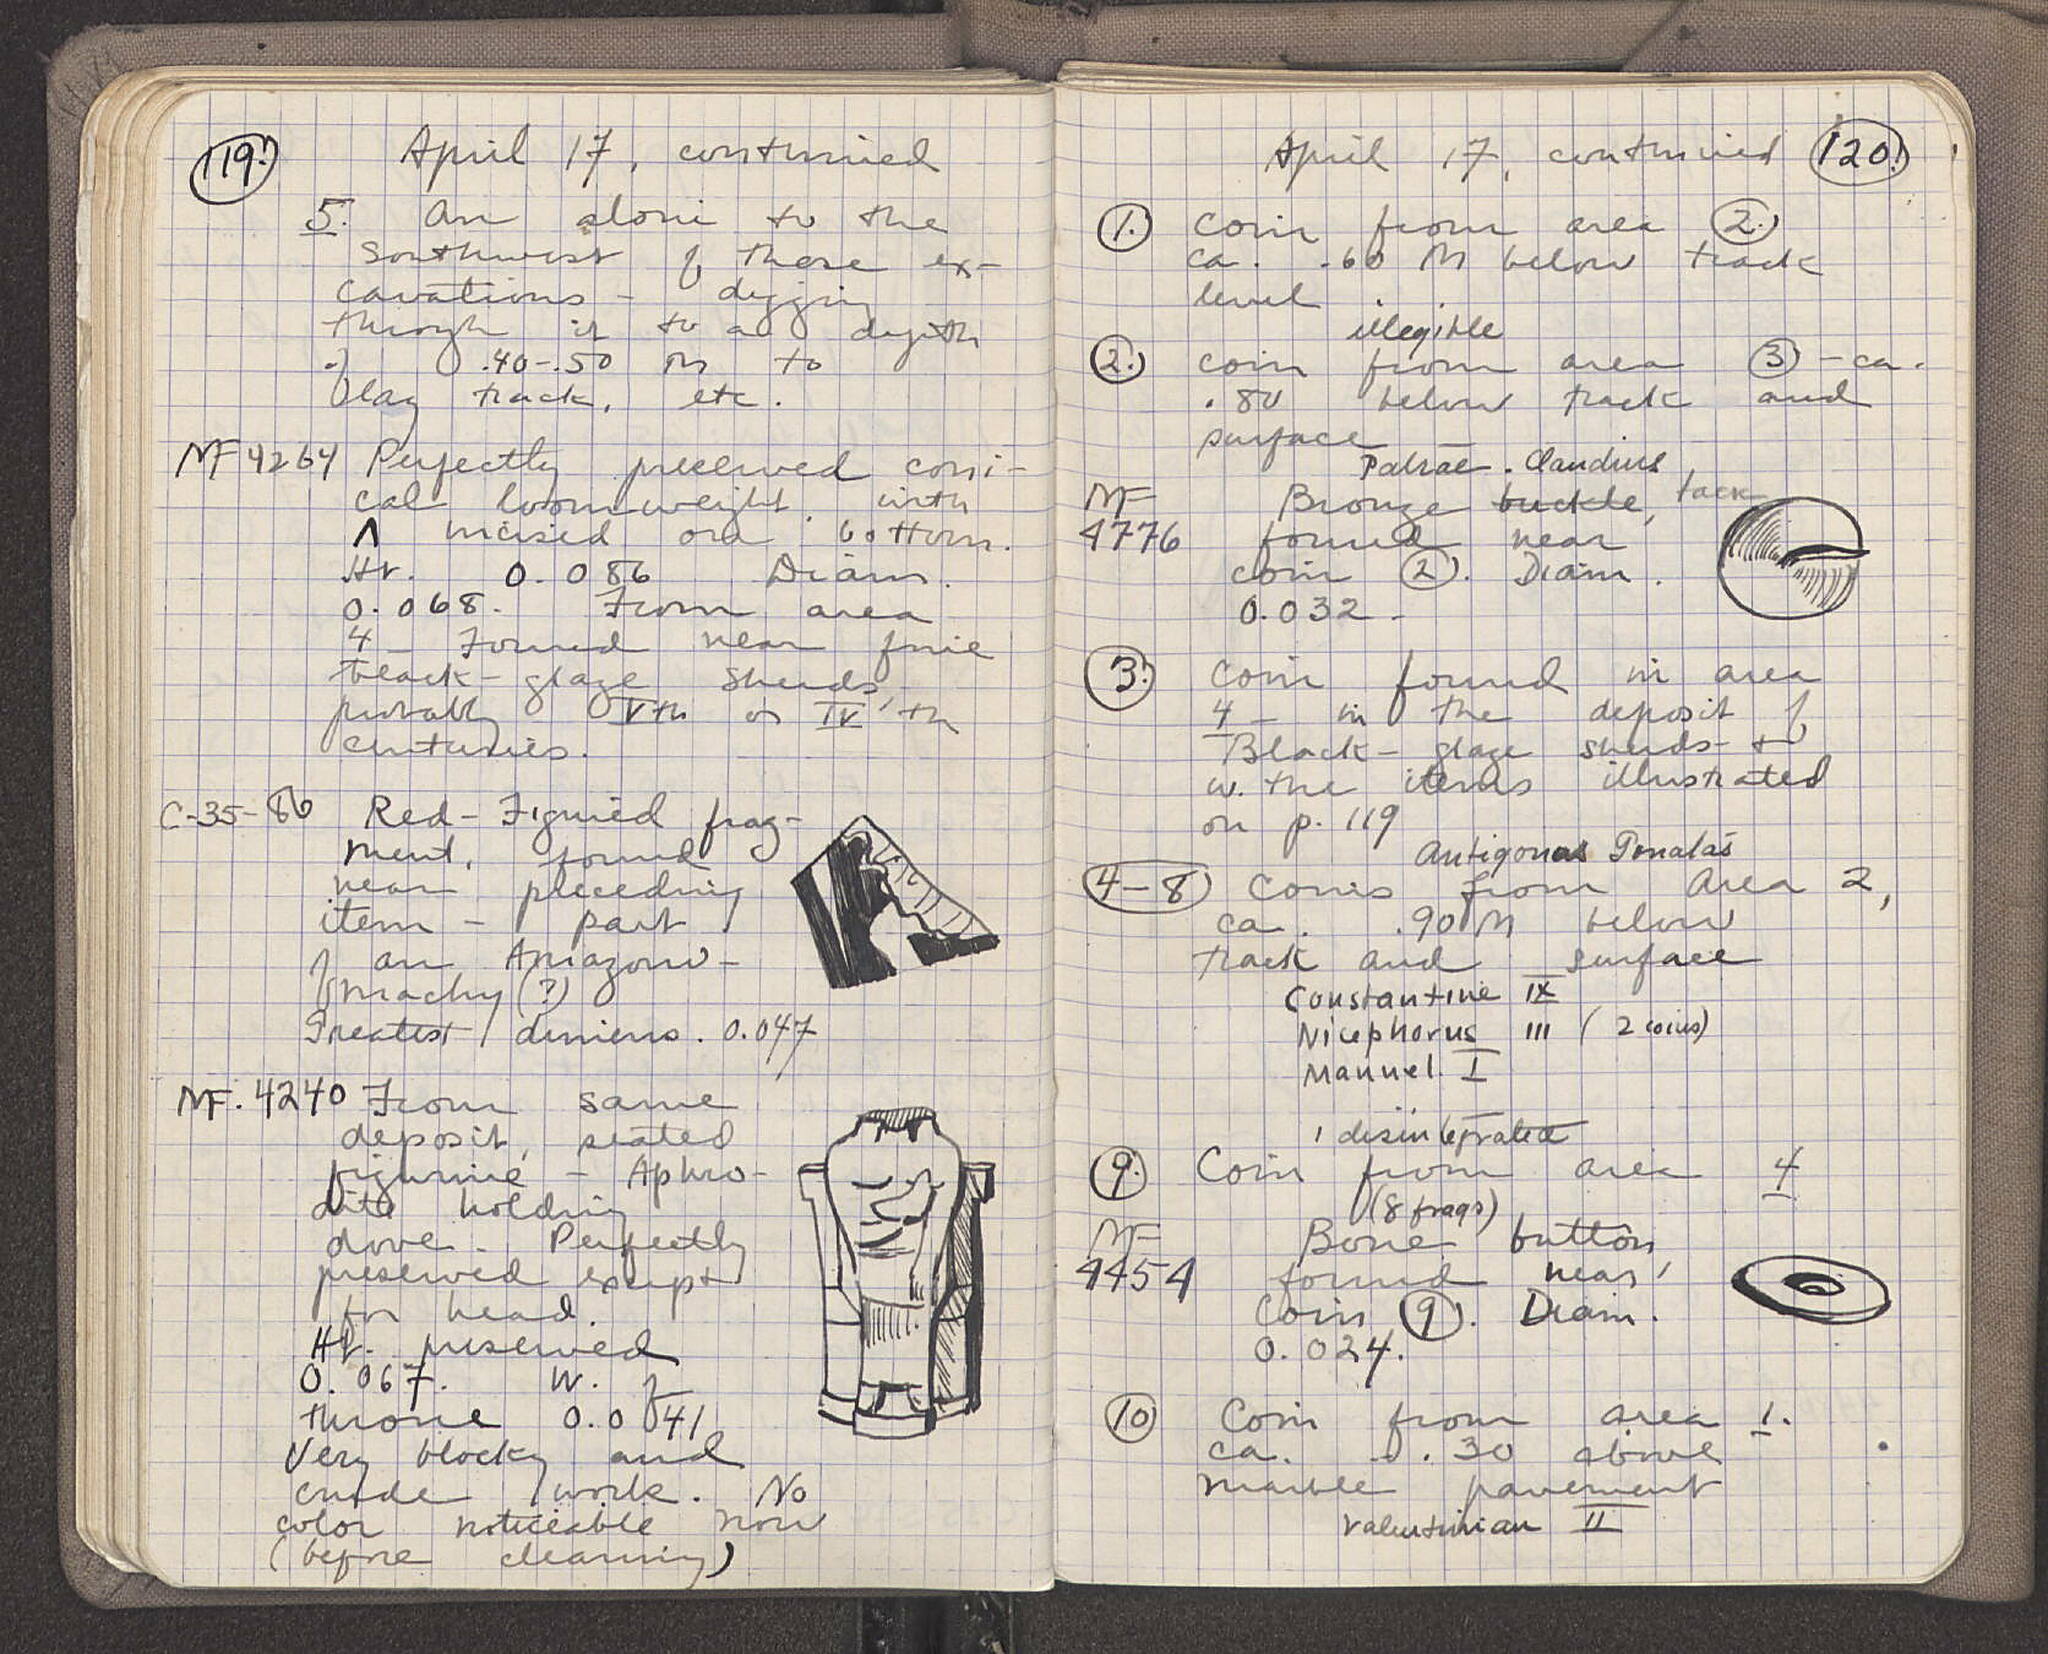 119.
April 17, continued
5. An aloni to the
southwest of these ex-
cavations - digging
through it to a depth
of .40-.50 m to
lay track, etc.
MF 4264 Perfectly preserved coni-
cal loomweight, with
Λ incised on bottom.
Ht. 0.086 Diam.
0.068. From area
4 - Found near fine
black-glaze sherds,
probably Vth or IV'th
centuries.
C-35-86 Red-Figured frag-
ment, found
near preceding
item - part
of an Amazono-
machy (?)
Greatest dimens. 0.047
MF. 4240 From same
deposit, seated
figurine - Aphro-
dite holding
dove. Perfectly
preserved except
for head.
Ht. preserved
0.067. W. of
throne 0.041
Very blocky and
crude work. No
color noticeable now
(before cleaning)
April 17, continued 120.
1. Coin from area 2.
ca. .60 M below track
level.
illegible
2. coin from area 3 - ca.
.80 below track and
surface
Patrae. Claudius
MF Bronze buckle, tack
4776 found near
coin 2. Diam.
0.032 -
3. Coin found in area
4 - in the deposit of
Black-glaze sherds - &
w. the items illustrated
on p. 119
Antigonas Gonatas
4-8 Coins from Area 2,
ca. .90 M below
track and surface
Constantine IX
Nicephorus III (2 coins)
Manuel I
1 disintegrated
9. Coin from area 4
(8 frags)
MF Bone button,
4454 found near
Coin 9. Diam.
0.024.
10 Coin from area 1.
ca. .30 above
marble pavement
Valentinian II